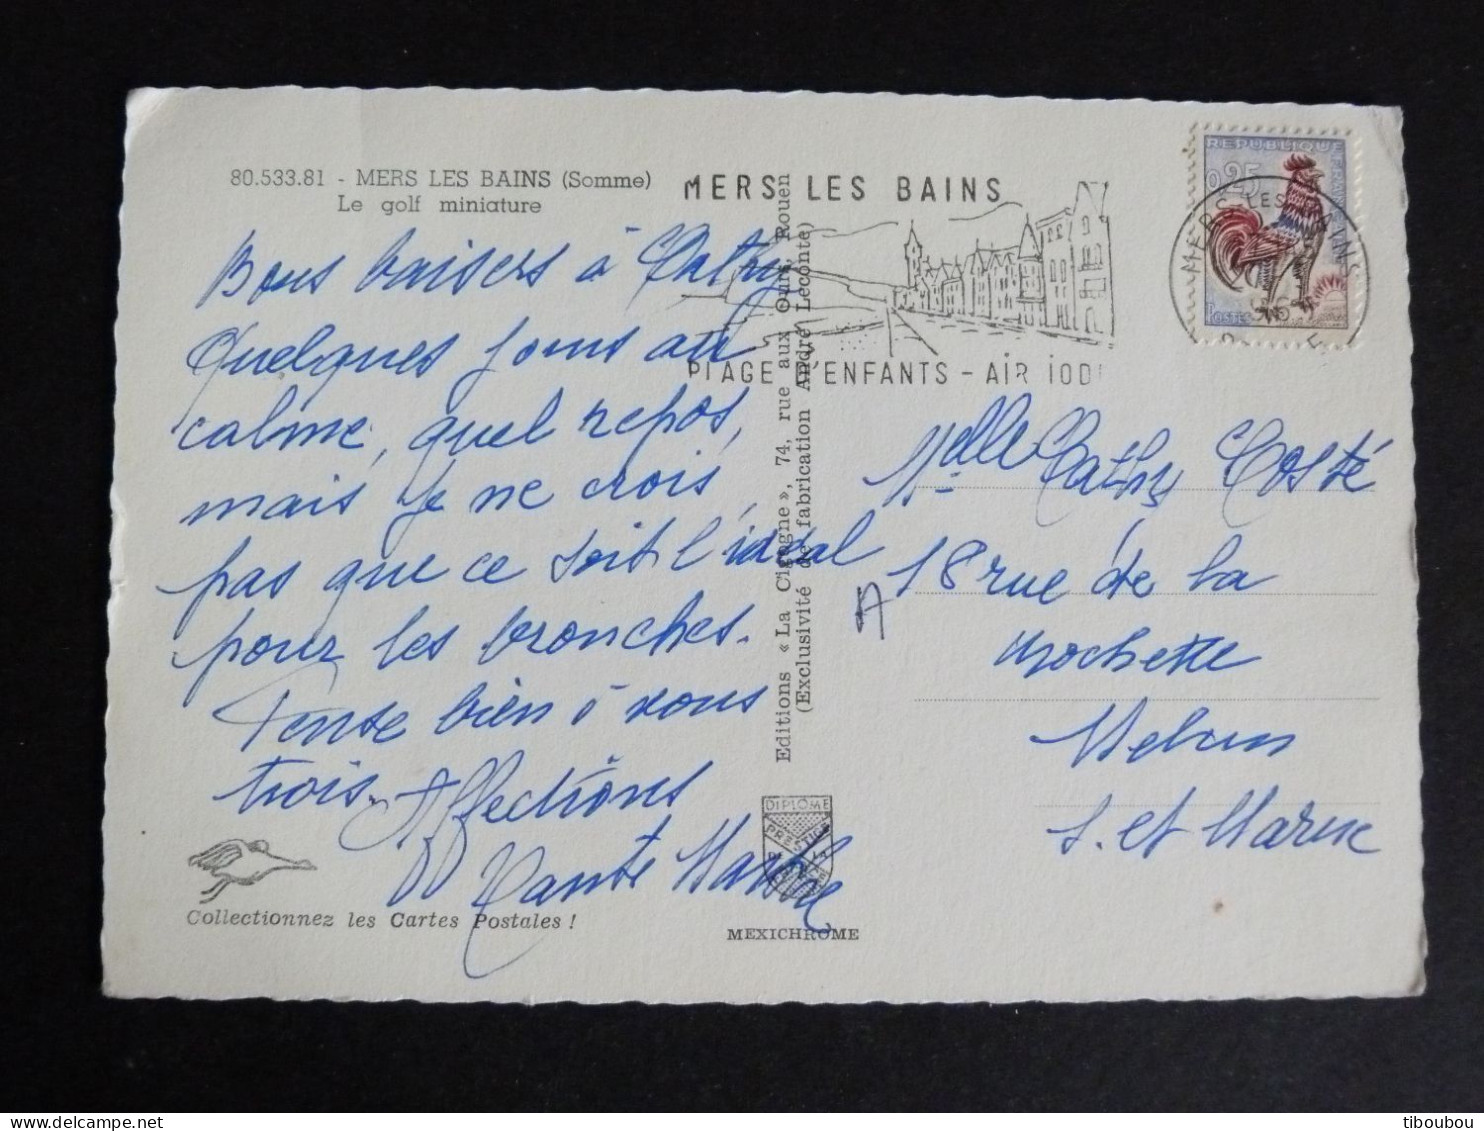 80.533.81 - MERS LES BAINS (Somme)
Le golf miniature
Bons baisers à Cathy
Quelques jours au
calme, quel repos,
mais je ne crois
pas que ce soit l'idéal
pour les bronches.
Pense bien à vous
trois. Affections
Tante
Collectionnez les Cartes Postales !
Editions « La Cigogne », 74, rue aux Ours, Rouen
(Exclusivité de fabrication André Leconte)
DIPLOME
PRESTIGE
DE LA
FRANCE
MEXICHROME
MERS LES BAINS
PLAGE D'ENFANTS - AIR IODÉ
REPUBLIQUE FRANÇAISE
0,25
POSTES
MERS LES BAINS
Melle Cathy Costé
18 rue de la
Rochette
Melun
S. et Marne
A
tiboubou